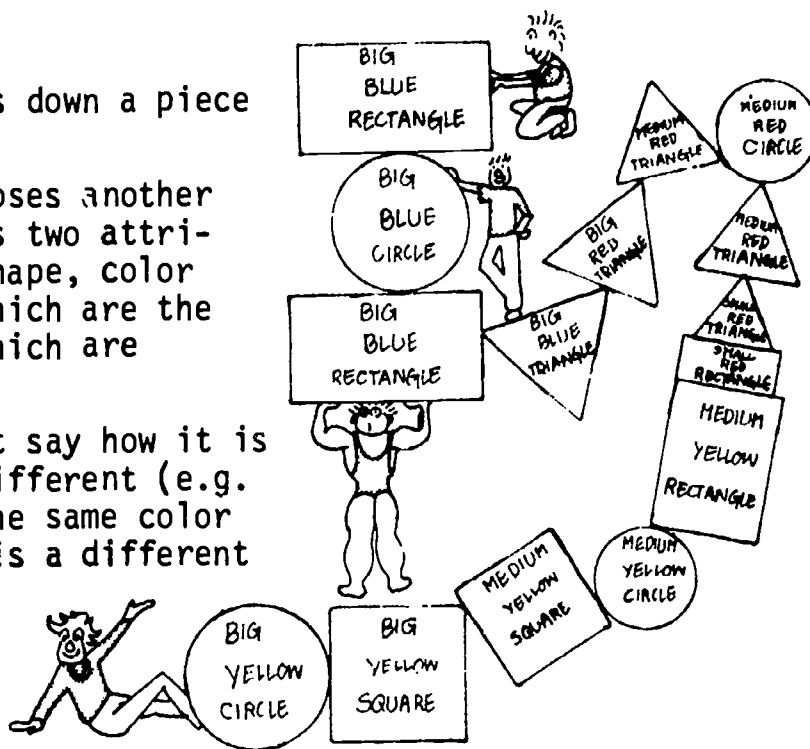 s down a piece
oses another
s two attri-
hape, color
hich are the
hich are
t say how it is
ifferent (e.g.
he same color
s a different
BIG
BLUE
RECTANGLE
BIG
BLUE
CIRCLE
BIG
BLUE
RECTANGLE
BIG
BLUE
TRIANGLE
BIG
RED
TRIANGLE
MEDIUM
RED
TRIANGLE
MEDIUM
RED
CIRCLE
MEDIUM
RED
TRIANGLE
SMALL
RED
TRIANGLE
SMALL
RED
RECTANGLE
MEDIUM
YELLOW
RECTANGLE
MEDIUM
YELLOW
CIRCLE
MEDIUM
YELLOW
SQUARE
BIG
YELLOW
SQUARE
BIG
YELLOW
CIRCLE